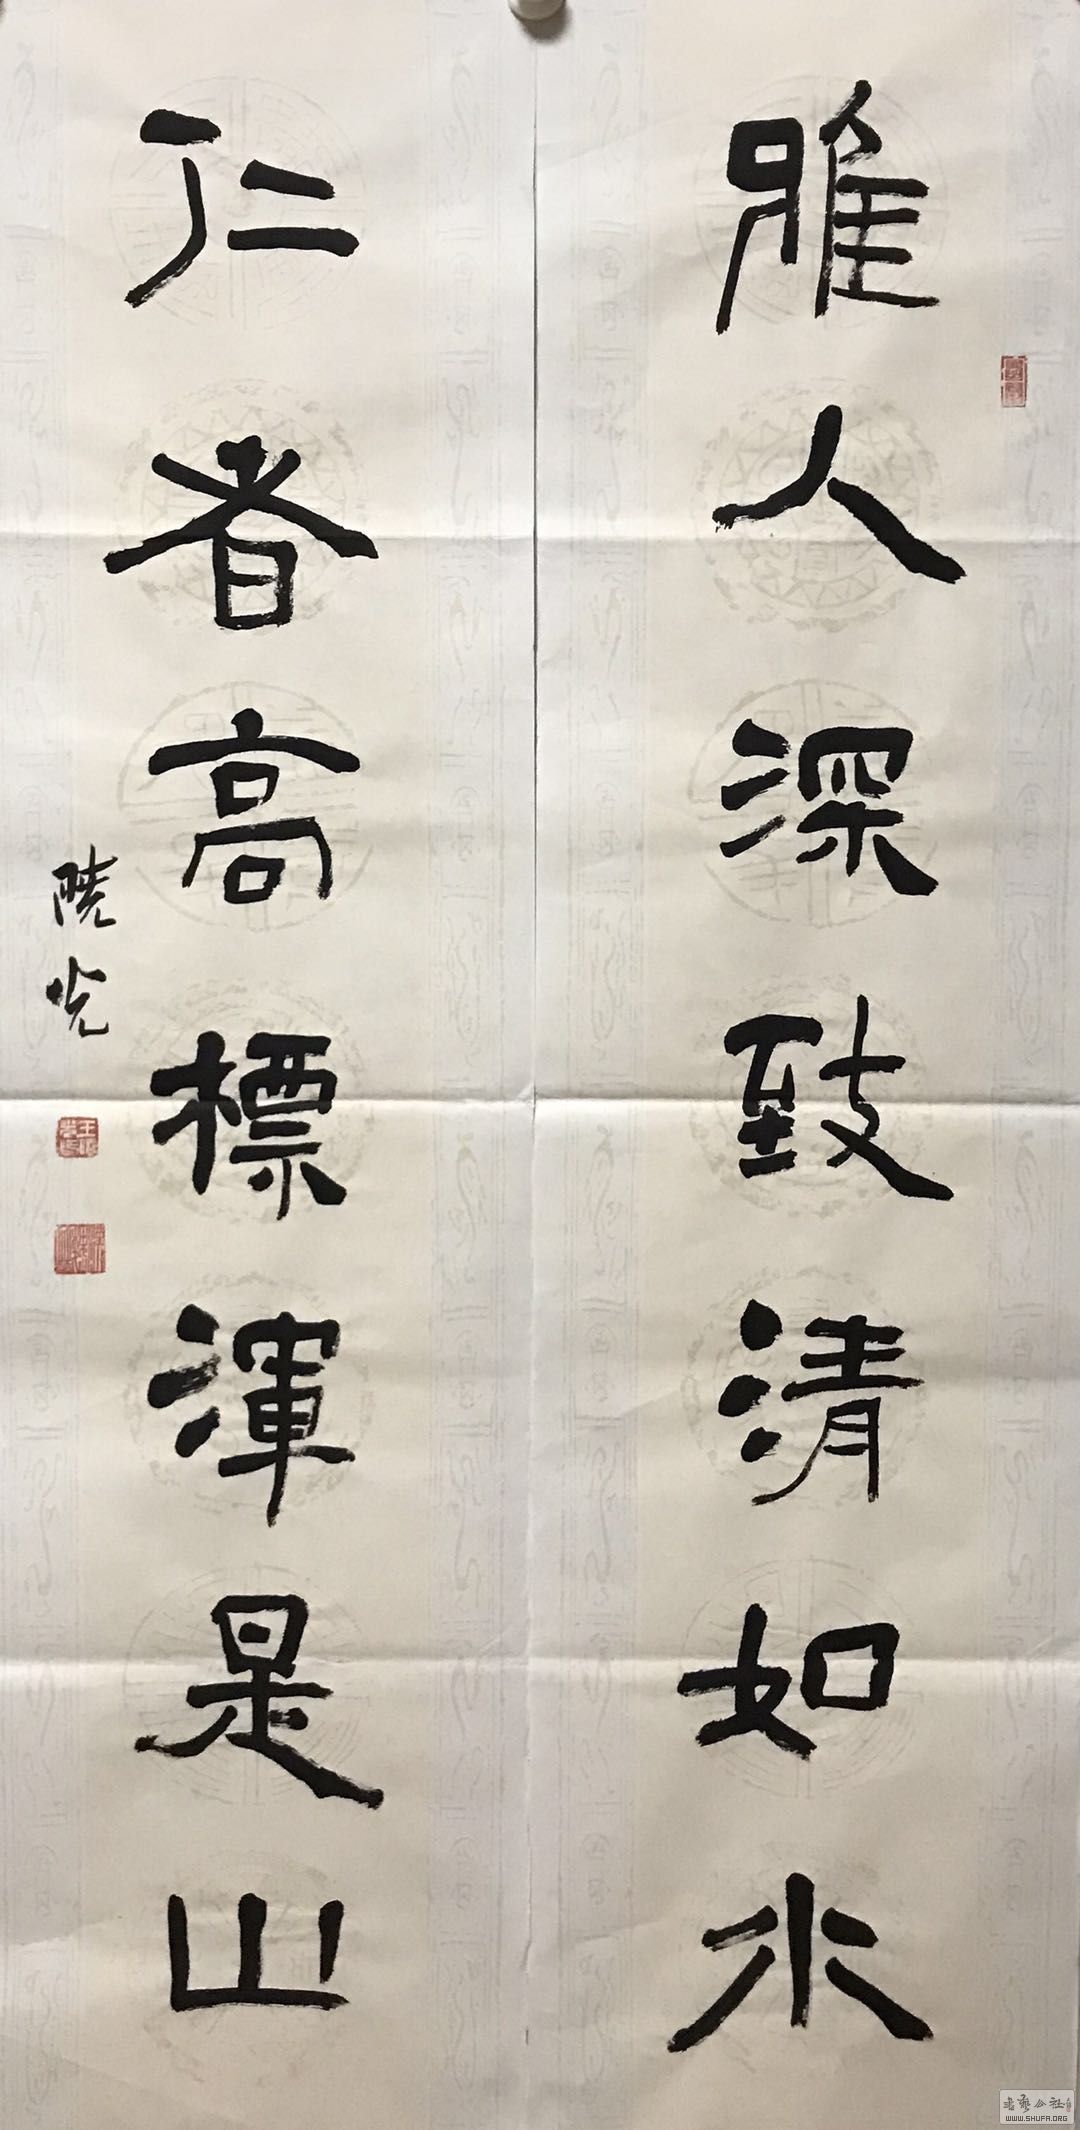 雅人深致清如水
仁者高標渾是山
曉光
書藝公社
WWW.SHUFA.ORG